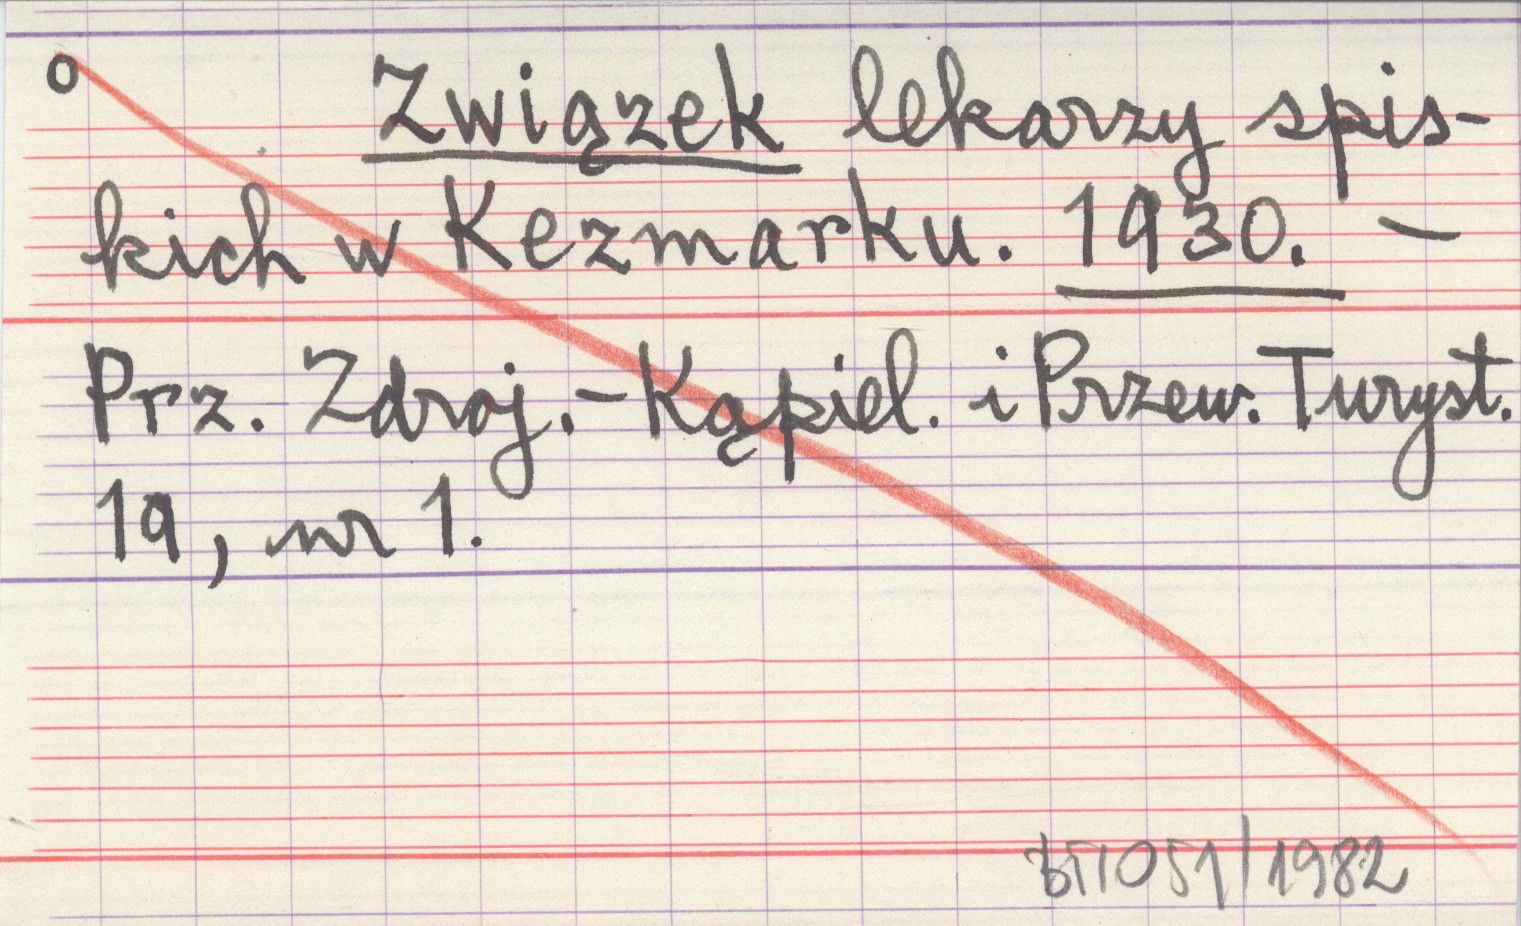 o Związek lekarzy spis-
kich w Kezmarku. 1930. -
Prz. Zdroj.-Kąpiel. i Przew. Turyst.
19, nr 1.
1051/1982